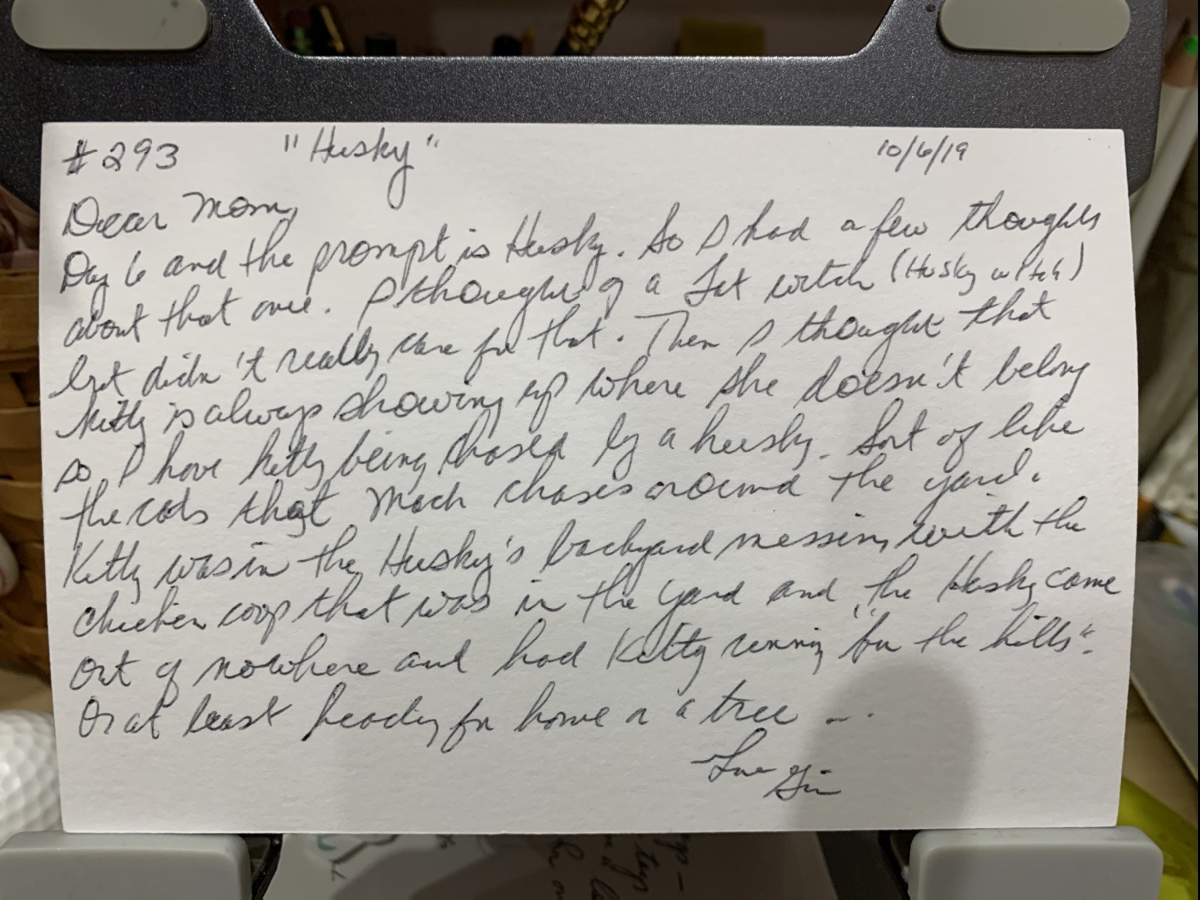 #293 "Husky" 10/6/19
Dear Mom,
Day 6 and the prompt is Husky. So I had a few thoughts
about that one. I thought of a fat witch (Husky witch)
but didn't really care for that. Then I thought that
Kitty is always showing up where she doesn't belong
so I have kitty being chased by a husky. Sort of like
the cats that Mach chases around the yard.
Kitty was in the Husky's backyard messing with the
chicken coop that was in the yard and the Husky came
out of nowhere and had Kitty running "for the hills".
Or at least heading for home or a tree ...
Love Gin